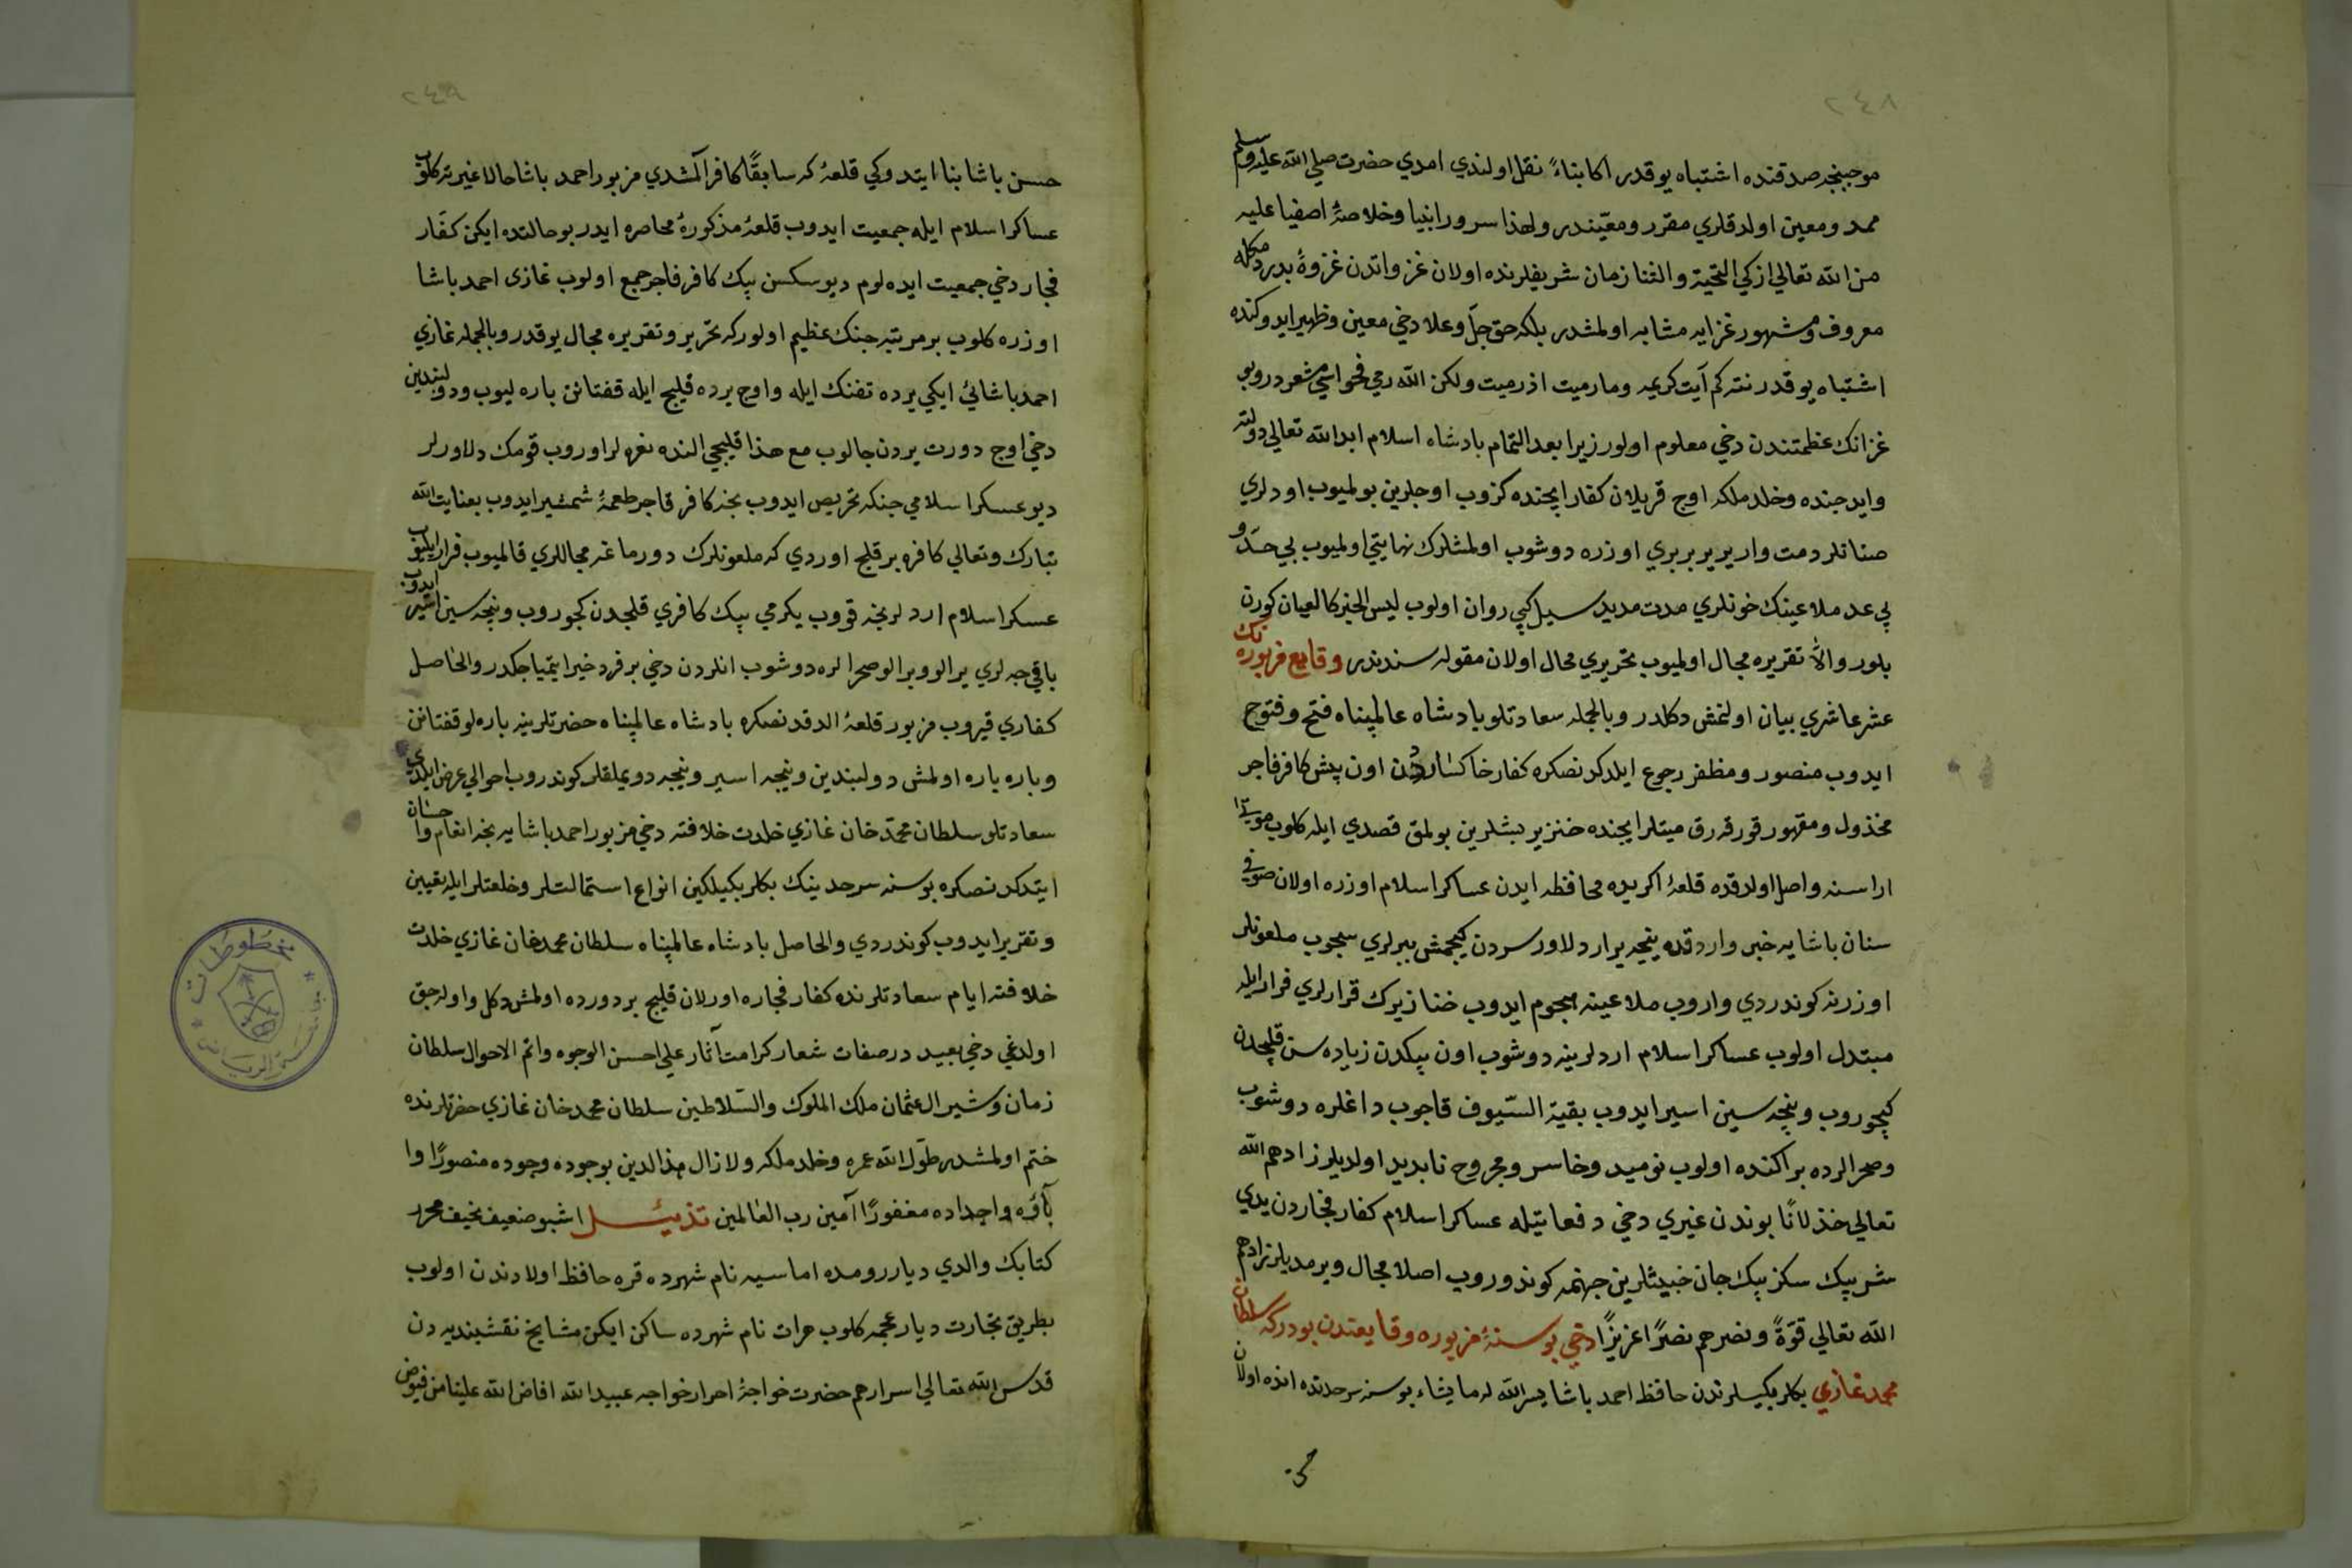 ٢٤٨
موجبنجه صدقنده اشتباه يوقدر اكا بناءً نقل اولندي امدي حضرت صلي الله عليه وسلم
ممد ومعين اولدقلري مقرر ومعيّندر ولهذا سرور انبيا وخلاصهٔ اصفيا عليه
من الله تعالي ازكي التحيّة والثنا زمان شريفلرنده اولان غزواتدن غزوهٔ بدر
معروف ومشهور غزايه مشابه اولمشدر بلكه حق جلّ وعلا دخي معين وظهير ايدوكنده
اشتباه يوقدر نته كم آيت كريمه ومارميت اذرميت ولكن الله رمي فحواسي مشعردر وبو
غزانك عظمتندن دخي معلوم اولور زيرا بعد التمام بادشاه اسلام ابد الله تعالي دولته
وايد جنده وخلد ملكه اوج قريلان كفار ايچنده كزوب اوجلرين بولميوب اودلري
صناتلر دمت وار يريربربري اوزره دوشوب اولمشلرك نهايتي اولميوب بي حدّ و
بي عد ملاعينك خونلري مدت مديد سيل كبي روان اولوب ليس الخبر كالعيان كورن
بلور والّا تقريره مجال اولميوب تحريري محال اولان مقوله سندندر وقايع مزبوره نك
عشر عاشري بيان اولنمش دكلدر وبالجمله سعادتلو بادشاه عالمپناه فتح وفتوح
ايدوب منصور ومظفر رجوع ايلدكدنصكره كفار خاكساردن اون بيش كافر فاجر
مخذول ومقهور قورقرق ميتلر ايجنده خنزير بشلرين بولمق قصدي ايله كلوب
اراسنه واصل اولدقده قلعهٔ اكريده محافظه ايدن عساكر اسلام اوزره اولان صوفي
سنان باشايه خبر واردقده ينجه يرار دلاور سردن كچمش ببرلري سچوب ملعونلر
اوزرنه كوندردي واروب ملاعينه هجوم ايدوب خنازيرك قرارلري فرار ايله
مبتدل اولوب عساكر اسلام اردلرينه دوشوب اون بيكدن زياده سن قلجدن
كچوروب ونجه سين اسير ايدوب بقية السّيوف قاچوب داغلره دوشوب
وصحرالرده براكنده اولوب نوميد وخاسر ومجروح نابديد اولديلر زادهم الله
تعالي خذلانًا بوندن غيري دخي دفعاتيله عساكر اسلام كفار فجاردن يدي
شر بيك سكز بيك جان خبيثلرين جهنمه كوندوروب اصلا مجال ويرمديلر زادهم
الله تعالي قوّةً ونصرهم نصرًا عزيزًا دخي بوسنهٔ مزبوره وقايعندن بودركه سلطان
محمد غازي بكلربكيلرندن حافظ احمد باشا يسر الله له ما يشاء بوسنه سرحدنده انده اولان
حسن
٢٤٩
حسن باشا بنا ايتدوكي قلعهٔ كه سابقًا كافر آلمشدي مزبور احمد باشا حالا غيرته كلوب
عساكر اسلام ايله جمعيت ايدوب قلعهٔ مذكورهٔ محاصره ايدر بو حالتده ايكن كفّار
فجار دخي جمعيت ايده لوم ديو سكسن بيك كافر فاجر جمع اولوب غازى احمد باشا
اوزره كلوب بر مرتبه جنك عظيم اولور كه تحرير وتقريره مجال يوقدر وبالجمله غازي
احمد باشائي ايكي يرده تفنك ايله واوج يرده قليج ايله قفتانن باره ليوب ودولبندين
دخي اوج دورت يردن چالوب مع هذا قليجي النده نعره لر اوروب قومك دلاورلر
ديو عسكر اسلامي جنكه تحريص ايدوب نجه كافر فاجر طعمهٔ شمشير ايدوب بعنايت الله
تبارك وتعالي كافره بر قلج اوردي كه ملعونلرك دورماغه مجاللري قالميوب فرار ايليوب
عسكر اسلام اردلرنجه قووب يكرمي بيك كافري قلجدن كچوروب ونجه سين اسير ايدوب
باقي جه لري ير الو ير الو صحرالره دوشوب انلردن دخي بر فرد خبر ايتمياجكدر والحاصل
كفاري قيروب مزبور قلعهٔ الدقدنصكره بادشاه عالمپناه حضرتلرينه باره لو قفتانن
وباره باره اولمش دولبندين ونجه اسير ونجه دويملقلر كوندروب احوالي عرض ايلدي
سعادتلو سلطان محمّد خان غازي خلدت خلافته دخي مزبور احمد باشايه نجه انعام واحسان
ايتدكدنصكره بوسنه سرحدينك بكلربكيلكين انواع استمالتلر وخلعتلر ايله تعيين
وتقرير ايدوب كوندردي والحاصل بادشاه عالمپناه سلطان محمد خان غازي خلدت
خلافته ايام سعادتلرنده كفار فجاره اورلان قليج بر دورده اولمش دكل واوله جق
اولدغي دخي بعيددر صفات شعار كرامت آثار علي احسن الوجوه واتم الاحوال سلطان
زمان وشير ال عثمان ملك الملوك والسّلاطين سلطان محمد خان غازي حضرتلرنده
ختم اولمشدر طوّل الله عمره وخلد ملكه ولازال هذا الدين بوجوده وجوده منصورًا وا
بآؤه واجداده مغفورًا آمين رب العالمين تذييل اشبو ضعيف نحيف محرر
كتابك والدي ديار رومده اماسيه نام شهرده قره حافظ اولادندن اولوب
بطريق تجارت ديار عجمه كلوب هرات نام شهرده ساكن ايكن مشايخ نقشبنديه دن
قدس الله تعالي اسرارهم حضرت خواجهٔ احرار خواجه عبيد الله افاض الله علينا من فيوض
مخطوطات
جامعة الرياض